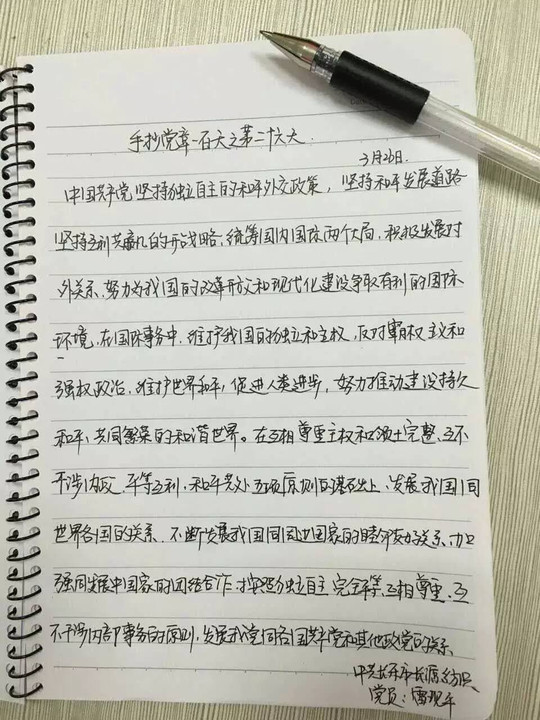 手抄党章·百天之第二十六天
3月26日.
中国共产党坚持独立自主的和平外交政策，坚持和平发展道路
坚持互利共赢的开放战略,统筹国内国际两个大局,积极发展对
外关系,努力为我国的改革开放和现代化建设争取有利的国际
环境,在国际事务中,维护我国的独立和主权,反对霸权主义和
强权政治,维护世界和平,促进人类进步,努力推动建设持久
和平、共同繁荣的和谐世界。在互相尊重主权和领土完整、互不
干涉内政、平等互利、和平共处五项原则的基础上,发展我国同
世界各国的关系.不断发展我国同周边国家的睦邻友好关系,加
强同发展中国家的团结合作.按照独立自主、完全平等、互相尊重、互
不干涉内部事务的原则,发展我党同各国共产党和其他政党的关系
党员: